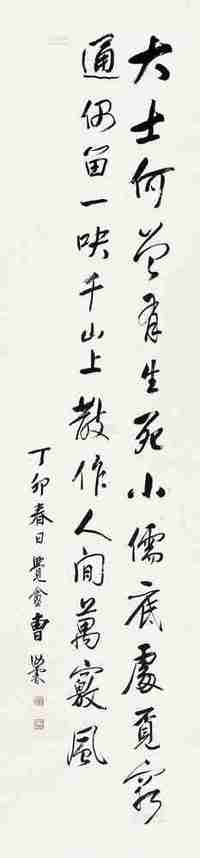 大士何曾有生死小儒底處覓窮
通偶留一吷千山上散作人間萬竅風
丁卯春日覺盦曹